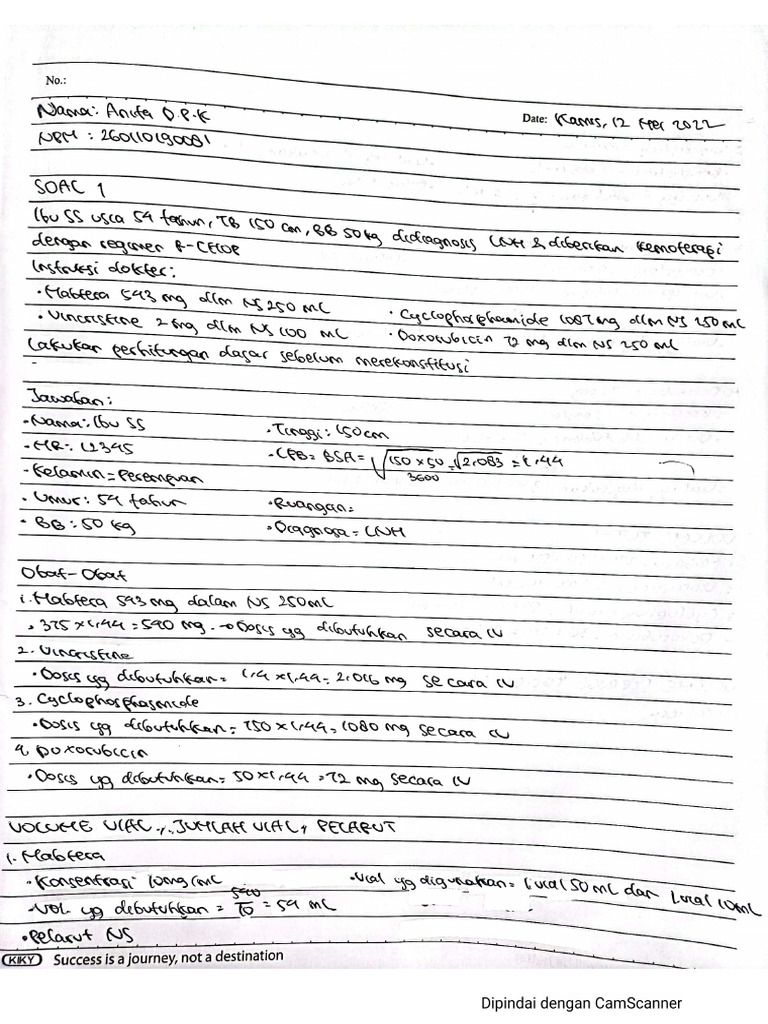 No.:
Nama: Anita D.P.K
Date: Kamis, 12 Mei 2022
NPM : 260110190081
SOAL 1
Ibu SS usia 54 tahun, TB 150 cm, BB 50 kg didiagnosis LNH & diberikan kemoterapi
dengan regimen R-CHOP
Instruksi dokter:
• Mabtera 543 mg dlm NS 250 mL • Cyclophosphamide 1087 mg dlm NS 250 mL
• Vincristine 2 mg dlm NS 100 mL • Doxorubicin 72 mg dlm NS 250 mL
Lakukan perhitungan dasar sebelum merekonstitusi
Jawaban:
• Nama: Ibu SS • Tinggi: 150 cm
• MR: 12345 • LPB = BSA = √150 x 50/3600 = √2,083 = 1,44
• Kelamin = Perempuan
• Umur: 54 tahun • Ruangan =
• BB: 50 kg • Diagnosa = LNH
Obat-Obat
1. Mabtera 543 mg dalam NS 250 mL
• 375 x 1,44 = 540 mg. → Dosis yg dibutuhkan secara IV
2. Vincristine
• Dosis yg dibutuhkan = 1,4 x 1,44 = 2,016 mg secara IV
3. Cyclophosphamide
• Dosis yg dibutuhkan = 750 x 1,44 = 1080 mg secara IV
4. Doxorubicin
• Dosis yg dibutuhkan = 50 x 1,44 = 72 mg secara IV
VOLUME VIAL, JUMLAH VIAL, PELARUT
1. Mabtera
• Konsentrasi 10mg/mL • Vial yg digunakan = 1 vial 50 mL dan 1 vial 10mL
• Vol. yg dibutuhkan = 540/10 = 54 mL
• Pelarut NS
KIKY Success is a journey, not a destination
Dipindai dengan CamScanner